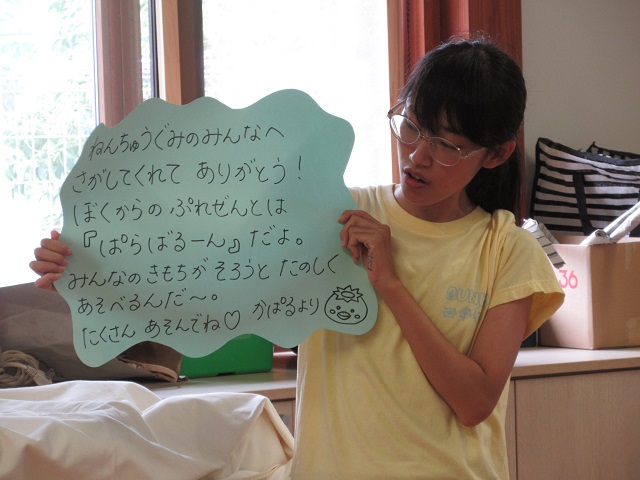 ねんちゅうぐみのみんなへ
さがしてくれて ありがとう!
ぼくからの ぷれぜんとは
『ぱらばるーん』だよ。
みんなのきもちが そろうと たのしく
あそべるんだ〜。
たくさん あそんでね♡ かぱるより
36